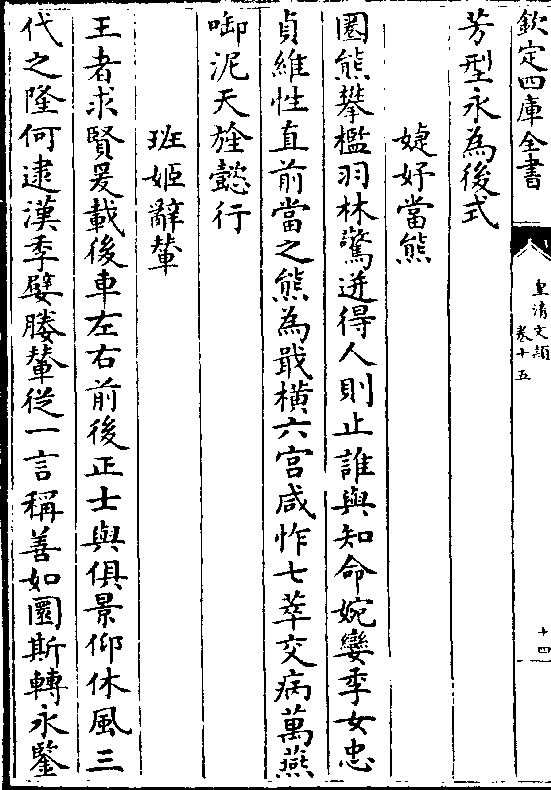 欽定四庫全書
皇清文類
卷十五
十四
芳型永為後式
婕妤當熊
圏熊攀檻羽林驚迸得人則止誰與知命婉孌季女忠
貞維性直前當之熊為戢橫六宫咸怍七萃交病萬燕
啣泥天旌懿行
班姬辭輦
王者求賢爰載後車左右前後正士與俱景仰休風三
代之隆何逮漢季嬖媵輦從一言稱善如圜斯轉永鑒